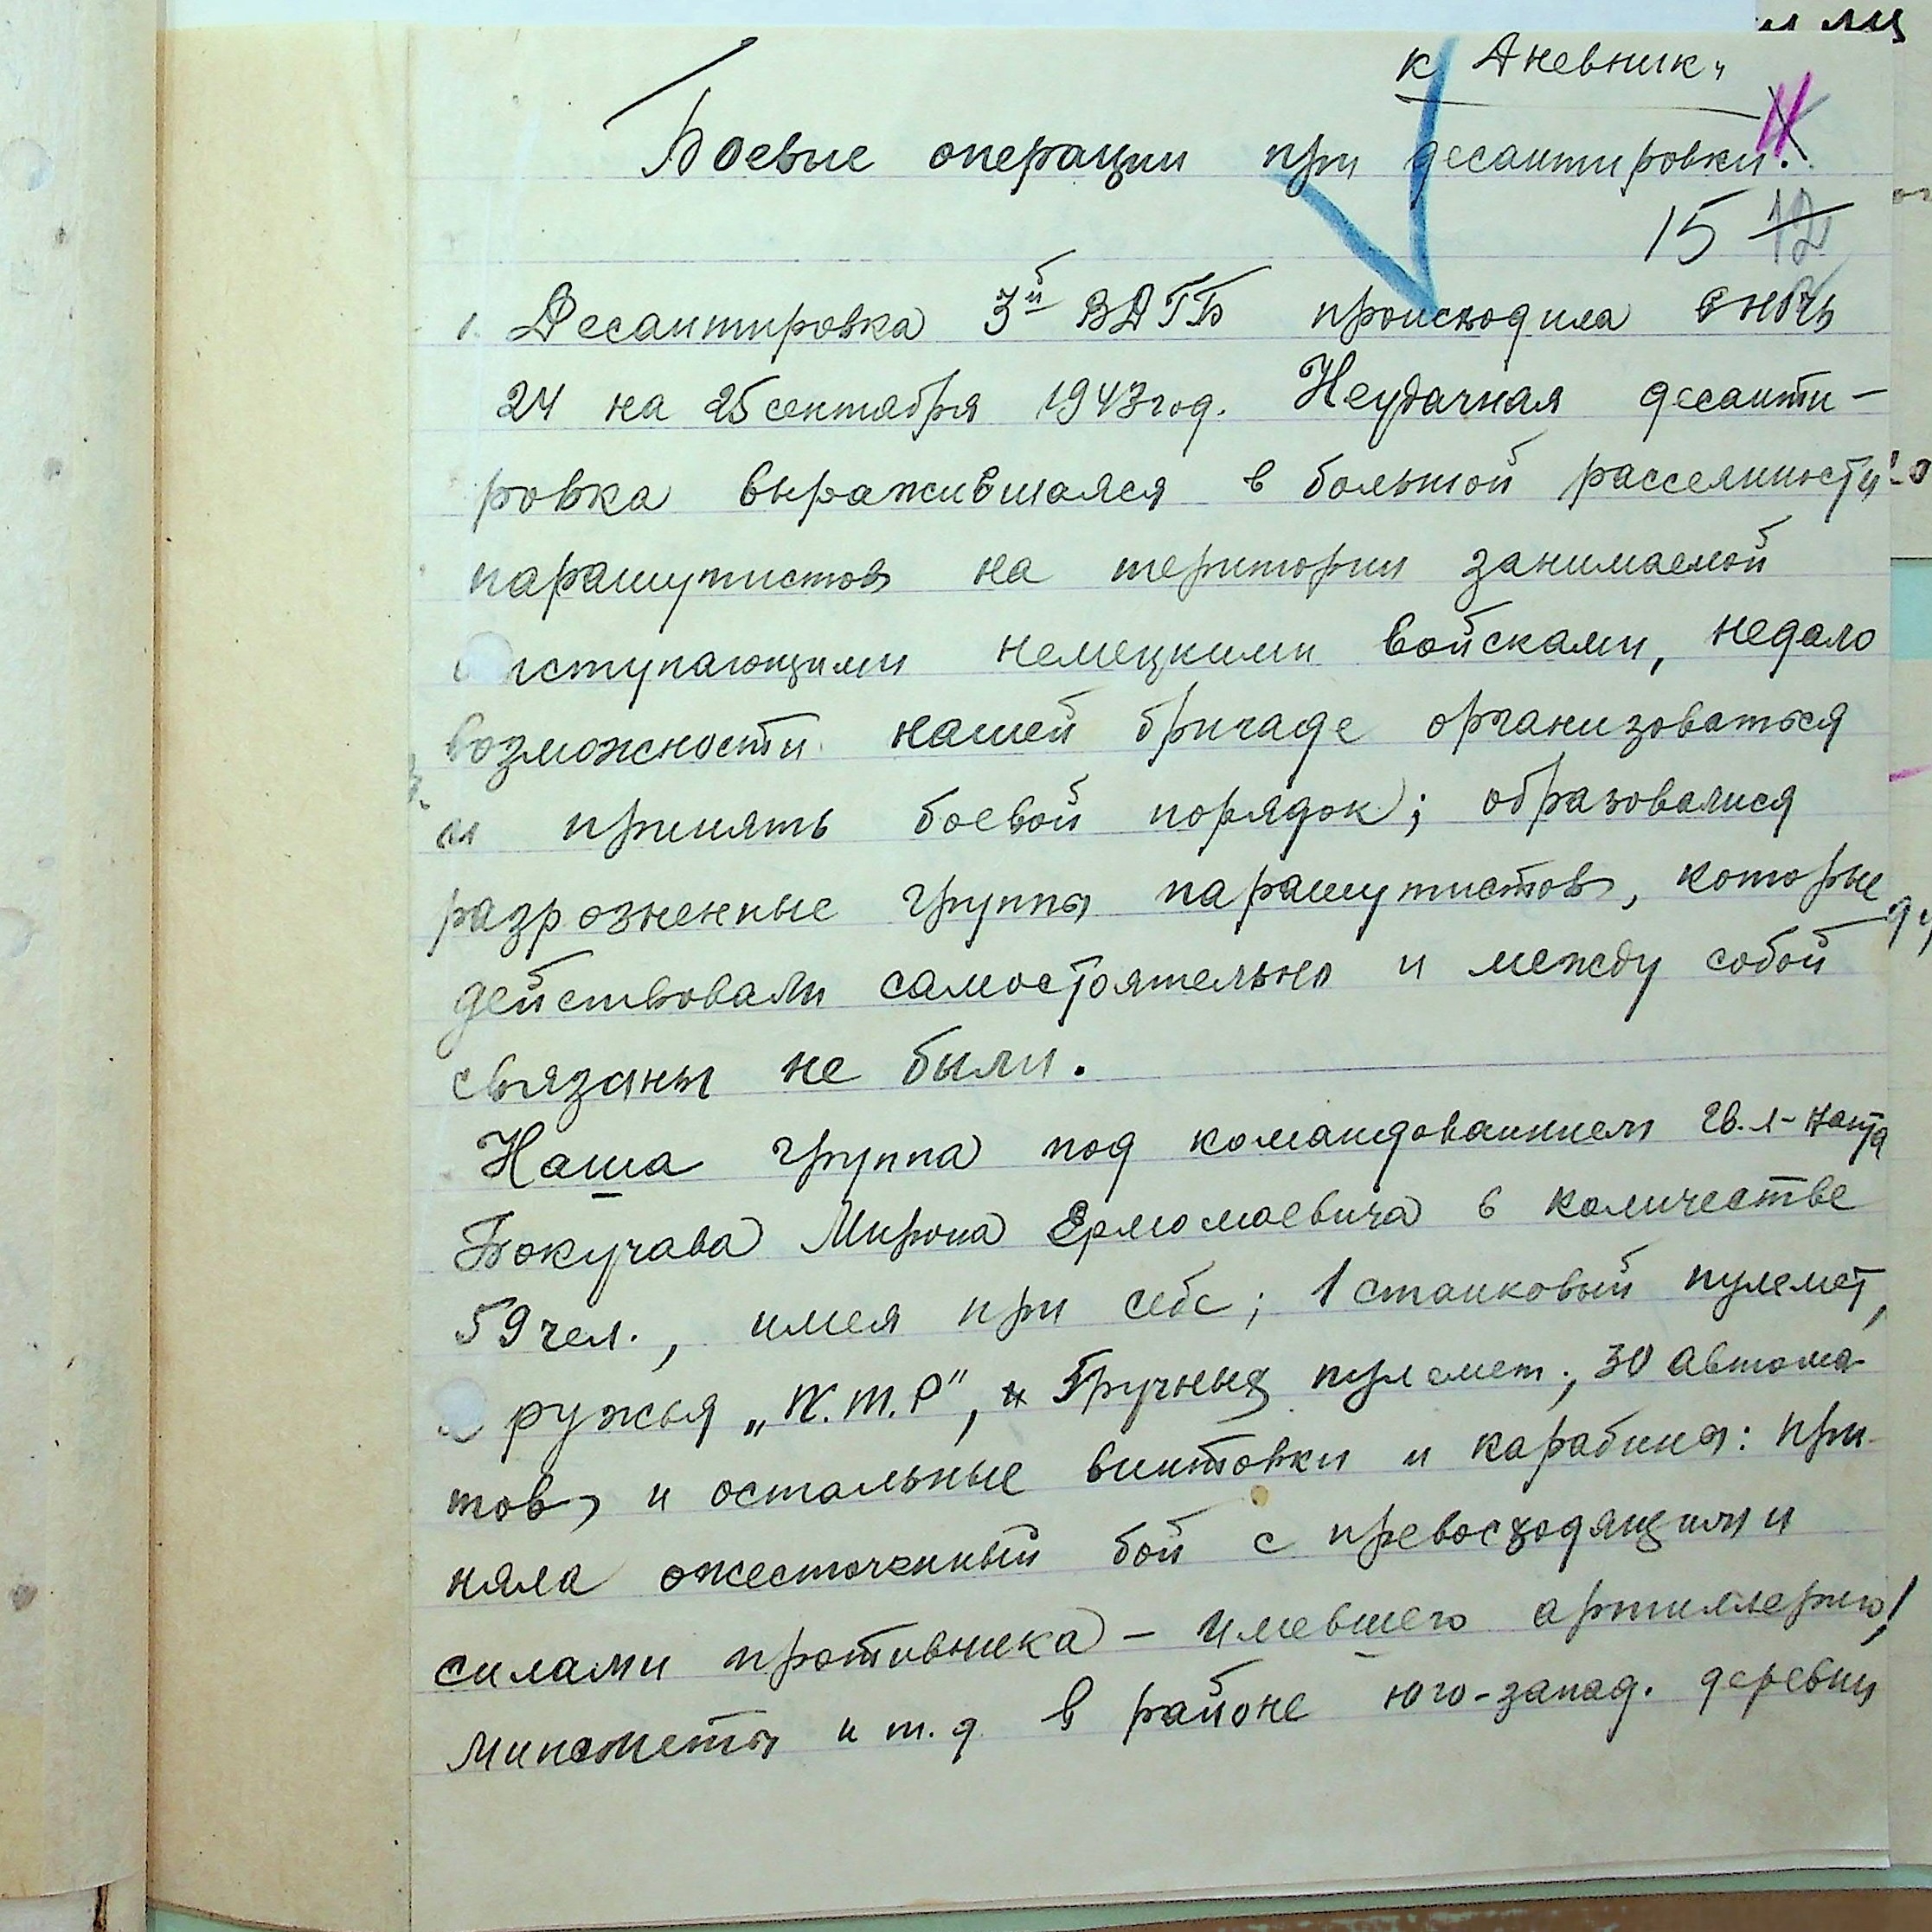 к Дневник.
Боевые операции при десантировки.
15 12
1. Десантировка 3й ВДГБ происходила в ночь
24 на 25 сентября 1943 год. Неудачная десанти-
ровка выражившаяся в большой рассеянности
парашутистов на територии занимаемой
отступающими немецкими войсками, недало
возможности нашей бригаде организоваться
и принять боевой порядок; образовалися
разрозненные группы парашутистов, которые
действовали самостоятельно и между собой
связаны не были.
Наша группа под командованием гв. л-нанта
Бокучава Мирона Ермомоевича в количестве
59 чел., имея при себе; 1 станковый пулемет,
ружья „П.Т.Р", ручных пулемет., 30 автома-
тов, и остальные винтовки и карабины: При-
няла ожесточенный бой с превосходящими
силами противника – имевшего артиллерию,
минометы и т.д в районе юго-запад. деревни